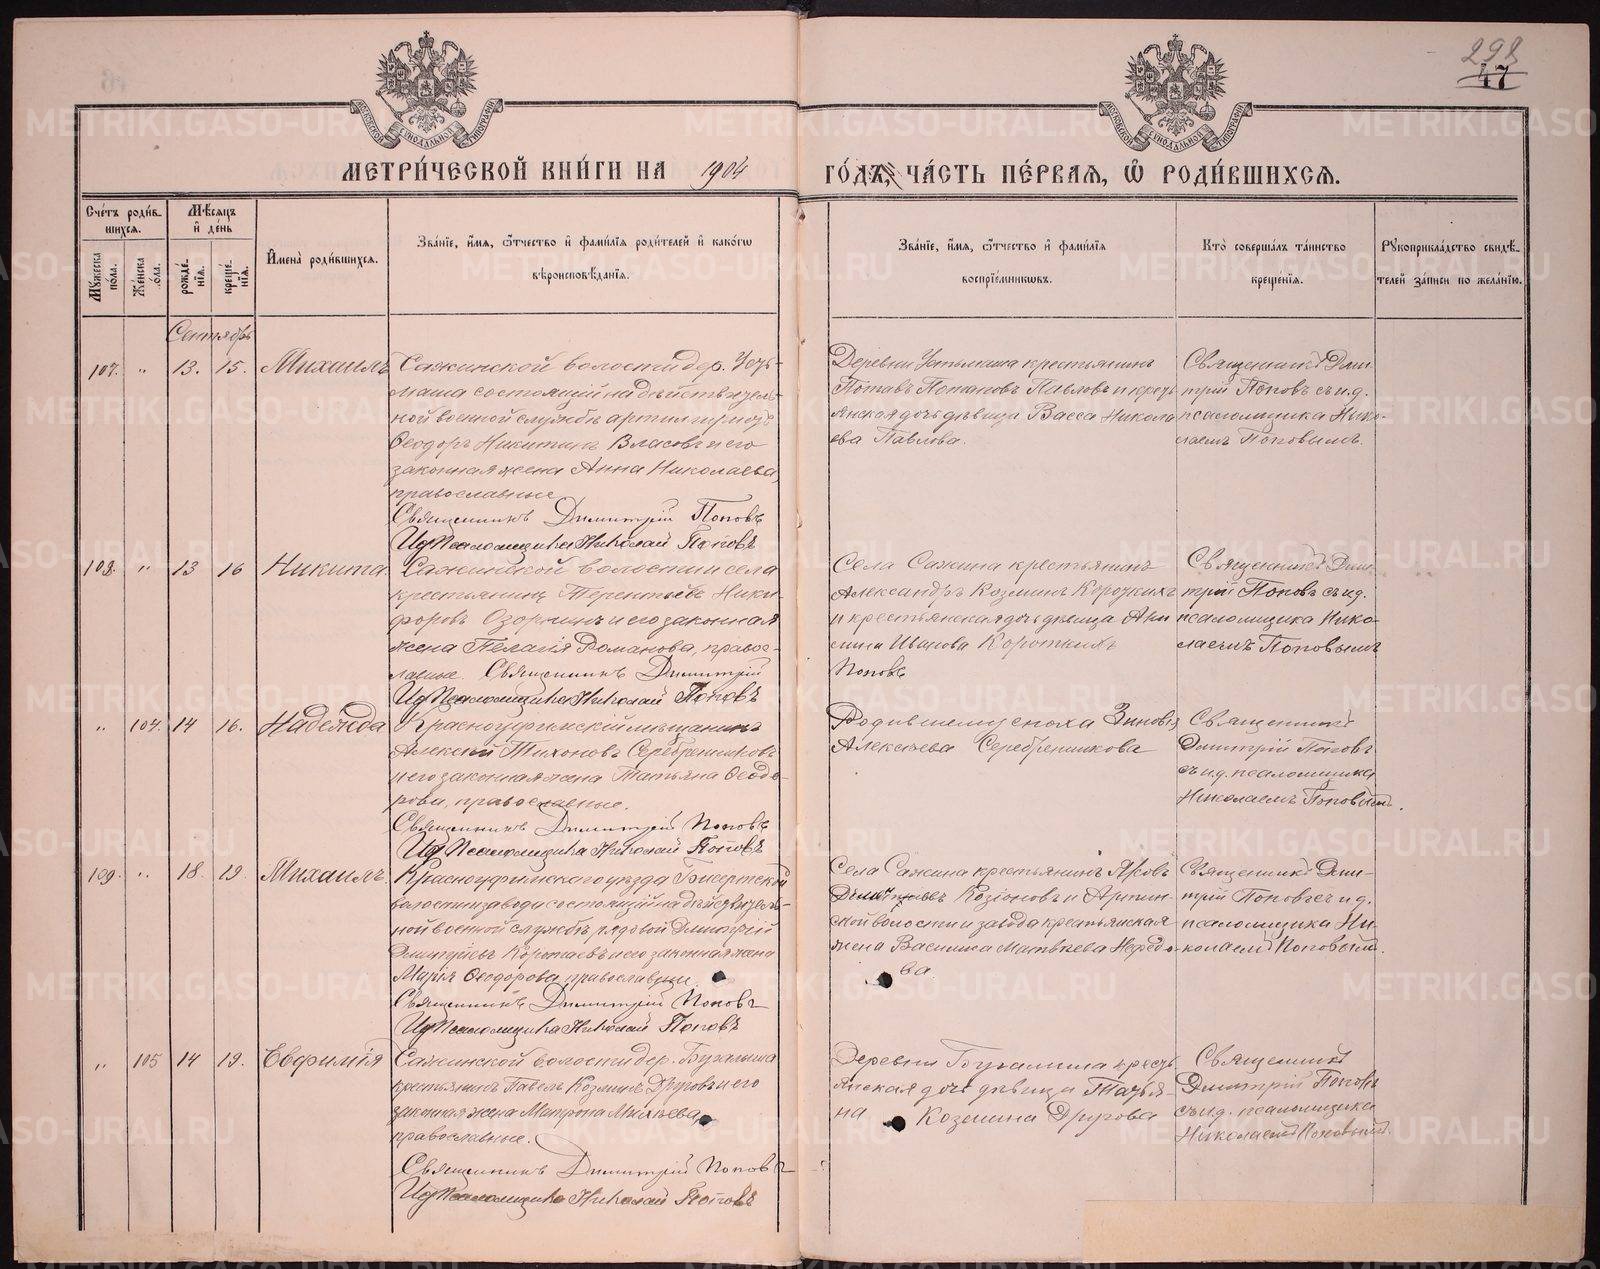 298
47
МОСКОВСКОЙ СѴНОДАЛЬНОЙ ТИПОГРАФІИ
МОСКОВСКОЙ СѴНОДАЛЬНОЙ ТИПОГРАФІИ
МЕТРИ́ЧЕСКОЙ КНИ́ГИ НА 1904 ГО́ДЪ, ЧА́СТЬ ПЕ́РВАЯ, Ѡ РОДИ́ВШИХСЯ.
Сче́тъ роди́в-
шихся.
Мѣ́сяцъ
и҆ де́нь
Му́жеска
по́ла.
Же́нска
по́ла.
рожде́-
нїя.
креще́-
нїя.
И҆мена̀ роди́вшихся.
Зва́нїе, и҆́мя, ѻ҆́тчество и҆ фами́лїя роди́телей и҆ како́гѡ
вѣроисповѣ́данїя.
Зва́нїе, и҆́мя, ѻ҆́тчество и҆ фами́лїя
воспрїе́мникѡвъ.
Кто̀ соверша́лъ та́инство
креще́нїя.
Рꙋкоприкла́дство свидѣ́-
телей за́писи по жела́нїю.
Сентябрь
107. " 13. 15. Михаилъ
Сажинской волости дер.
лаша состоящій на дѣйствитель-
ной военной службѣ артиллеристъ
Ѳеодоръ Никитинъ Власовъ и его
законная жена Анна Николаева,
православные
Священникъ Димитрій Поповъ
Ид Псаломщика Николай Поповъ
Деревни крестьянинъ
Потапъ Потаповъ Павловъ и кресть
янская дочь дѣвица Васса Никола
ева Павлова.
Священникъ Дими-
трій Поповъ съ и.д.
псаломщика Нико-
лаемъ Поповымъ.
108. " 13 16 Никита
Сажинской волости и села
крестьянинъ Терентьевъ Ники-
форовъ и его законная
жена Пелагія Романова, правос-
лавные. Священникъ Димитрій
Ид Псаломщика Николай Поповъ
Села Сажина крестьянинъ
Александръ Козминъ Короткихъ
и крестьянская дочь дѣвица
Иванова Короткихъ
Поповъ
Священникъ Дими-
трій Поповъ съ и.д.
псаломщика Нико-
лаемъ Поповымъ
" 104. 14 16. Надежда
Красноуфимскій мѣщанинъ
Алексѣй Тихоновъ Серебрениковъ
и его законная жена Татьяна Ѳеодо-
рова, православные.
Священникъ Димитрій Поповъ
Ид Псаломщика Николай Поповъ
Родившему сноха Зиновія
Алексѣева Серебреникова
Священникъ
Димитрій Поповъ
съ и.д. псаломщика
Николаемъ Поповымъ.
109. " 18. 19. Михаилъ
Красноуфимскаго уѣзда Бисертской
волости и завода состоящій на дѣйствитель-
ной военной службѣ рядовой Димитрій
Димитріевъ и его законная жена
Марія Ѳеодорова, православные.
Священникъ Димитрій Поповъ
Ид Псаломщика Николай Поповъ
Села Сажина крестьянинъ Яковъ
Козіоновъ и Артин-
ской волости и завода крестьянская
жена Василиса Матвѣева
ва.
Священникъ Дими-
трій Поповъ съ и д.
псаломщика Ни-
колаемъ Поповымъ.
" 105 14 19. Евфимія
Сажинской волости дер. Бугалыша
крестьянинъ Павелъ Козминъ Друговъ и его
законная жена Матрона
православные.
Священникъ Димитрій Поповъ
Ид Псаломщика Николай Поповъ
Деревни Бугалыша кресть-
янская дочь дѣвица Татья-
на Козмина Другова
Священникъ
Димитрій Поповъ
съ и.д. псаломщика
Николаемъ Поповымъ.
METRIKI.GASO-URAL.RU